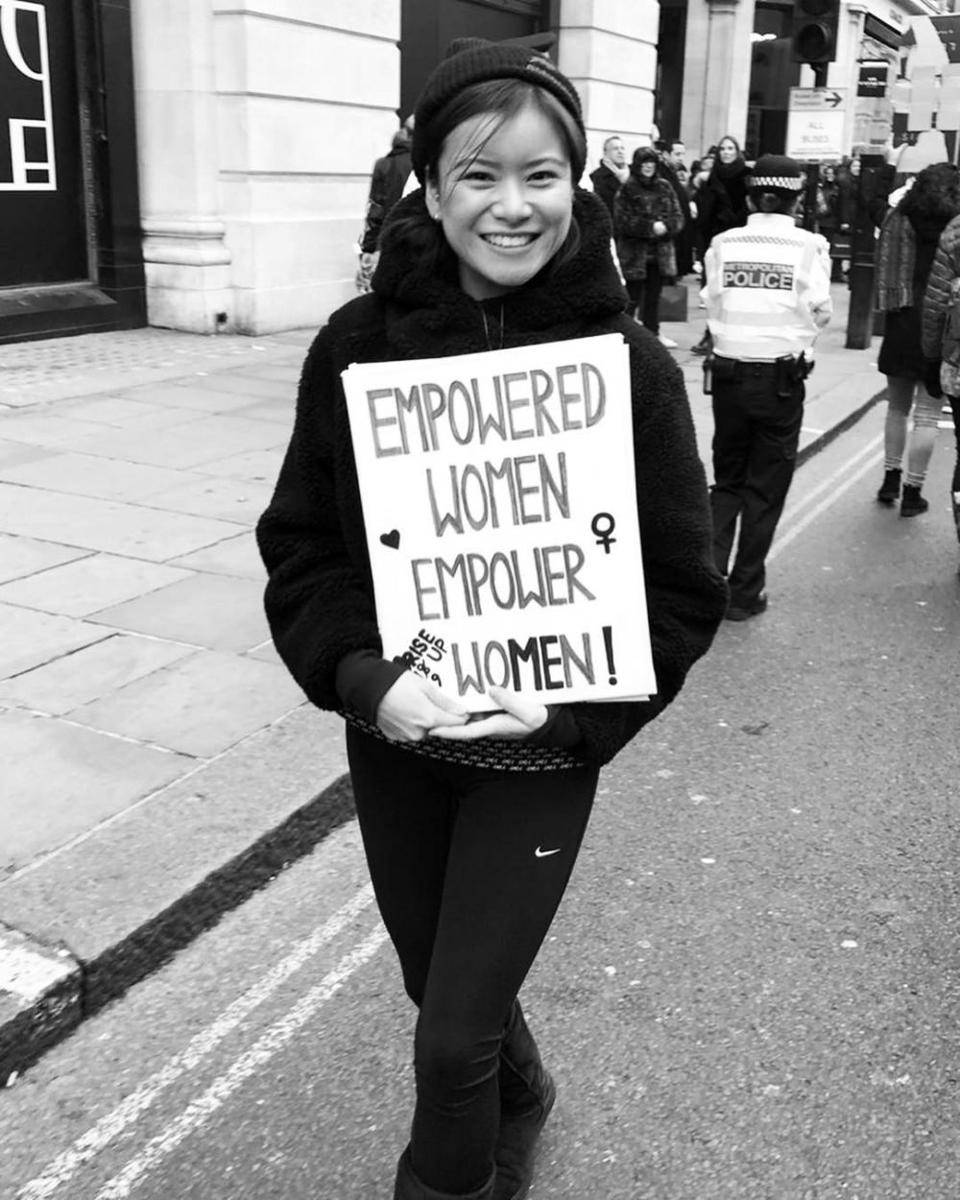 EMPOWERED
WOMEN
EMPOWER
WOMEN!
RISE
UP
METROPOLITAN
POLICE
ALL
BUSES